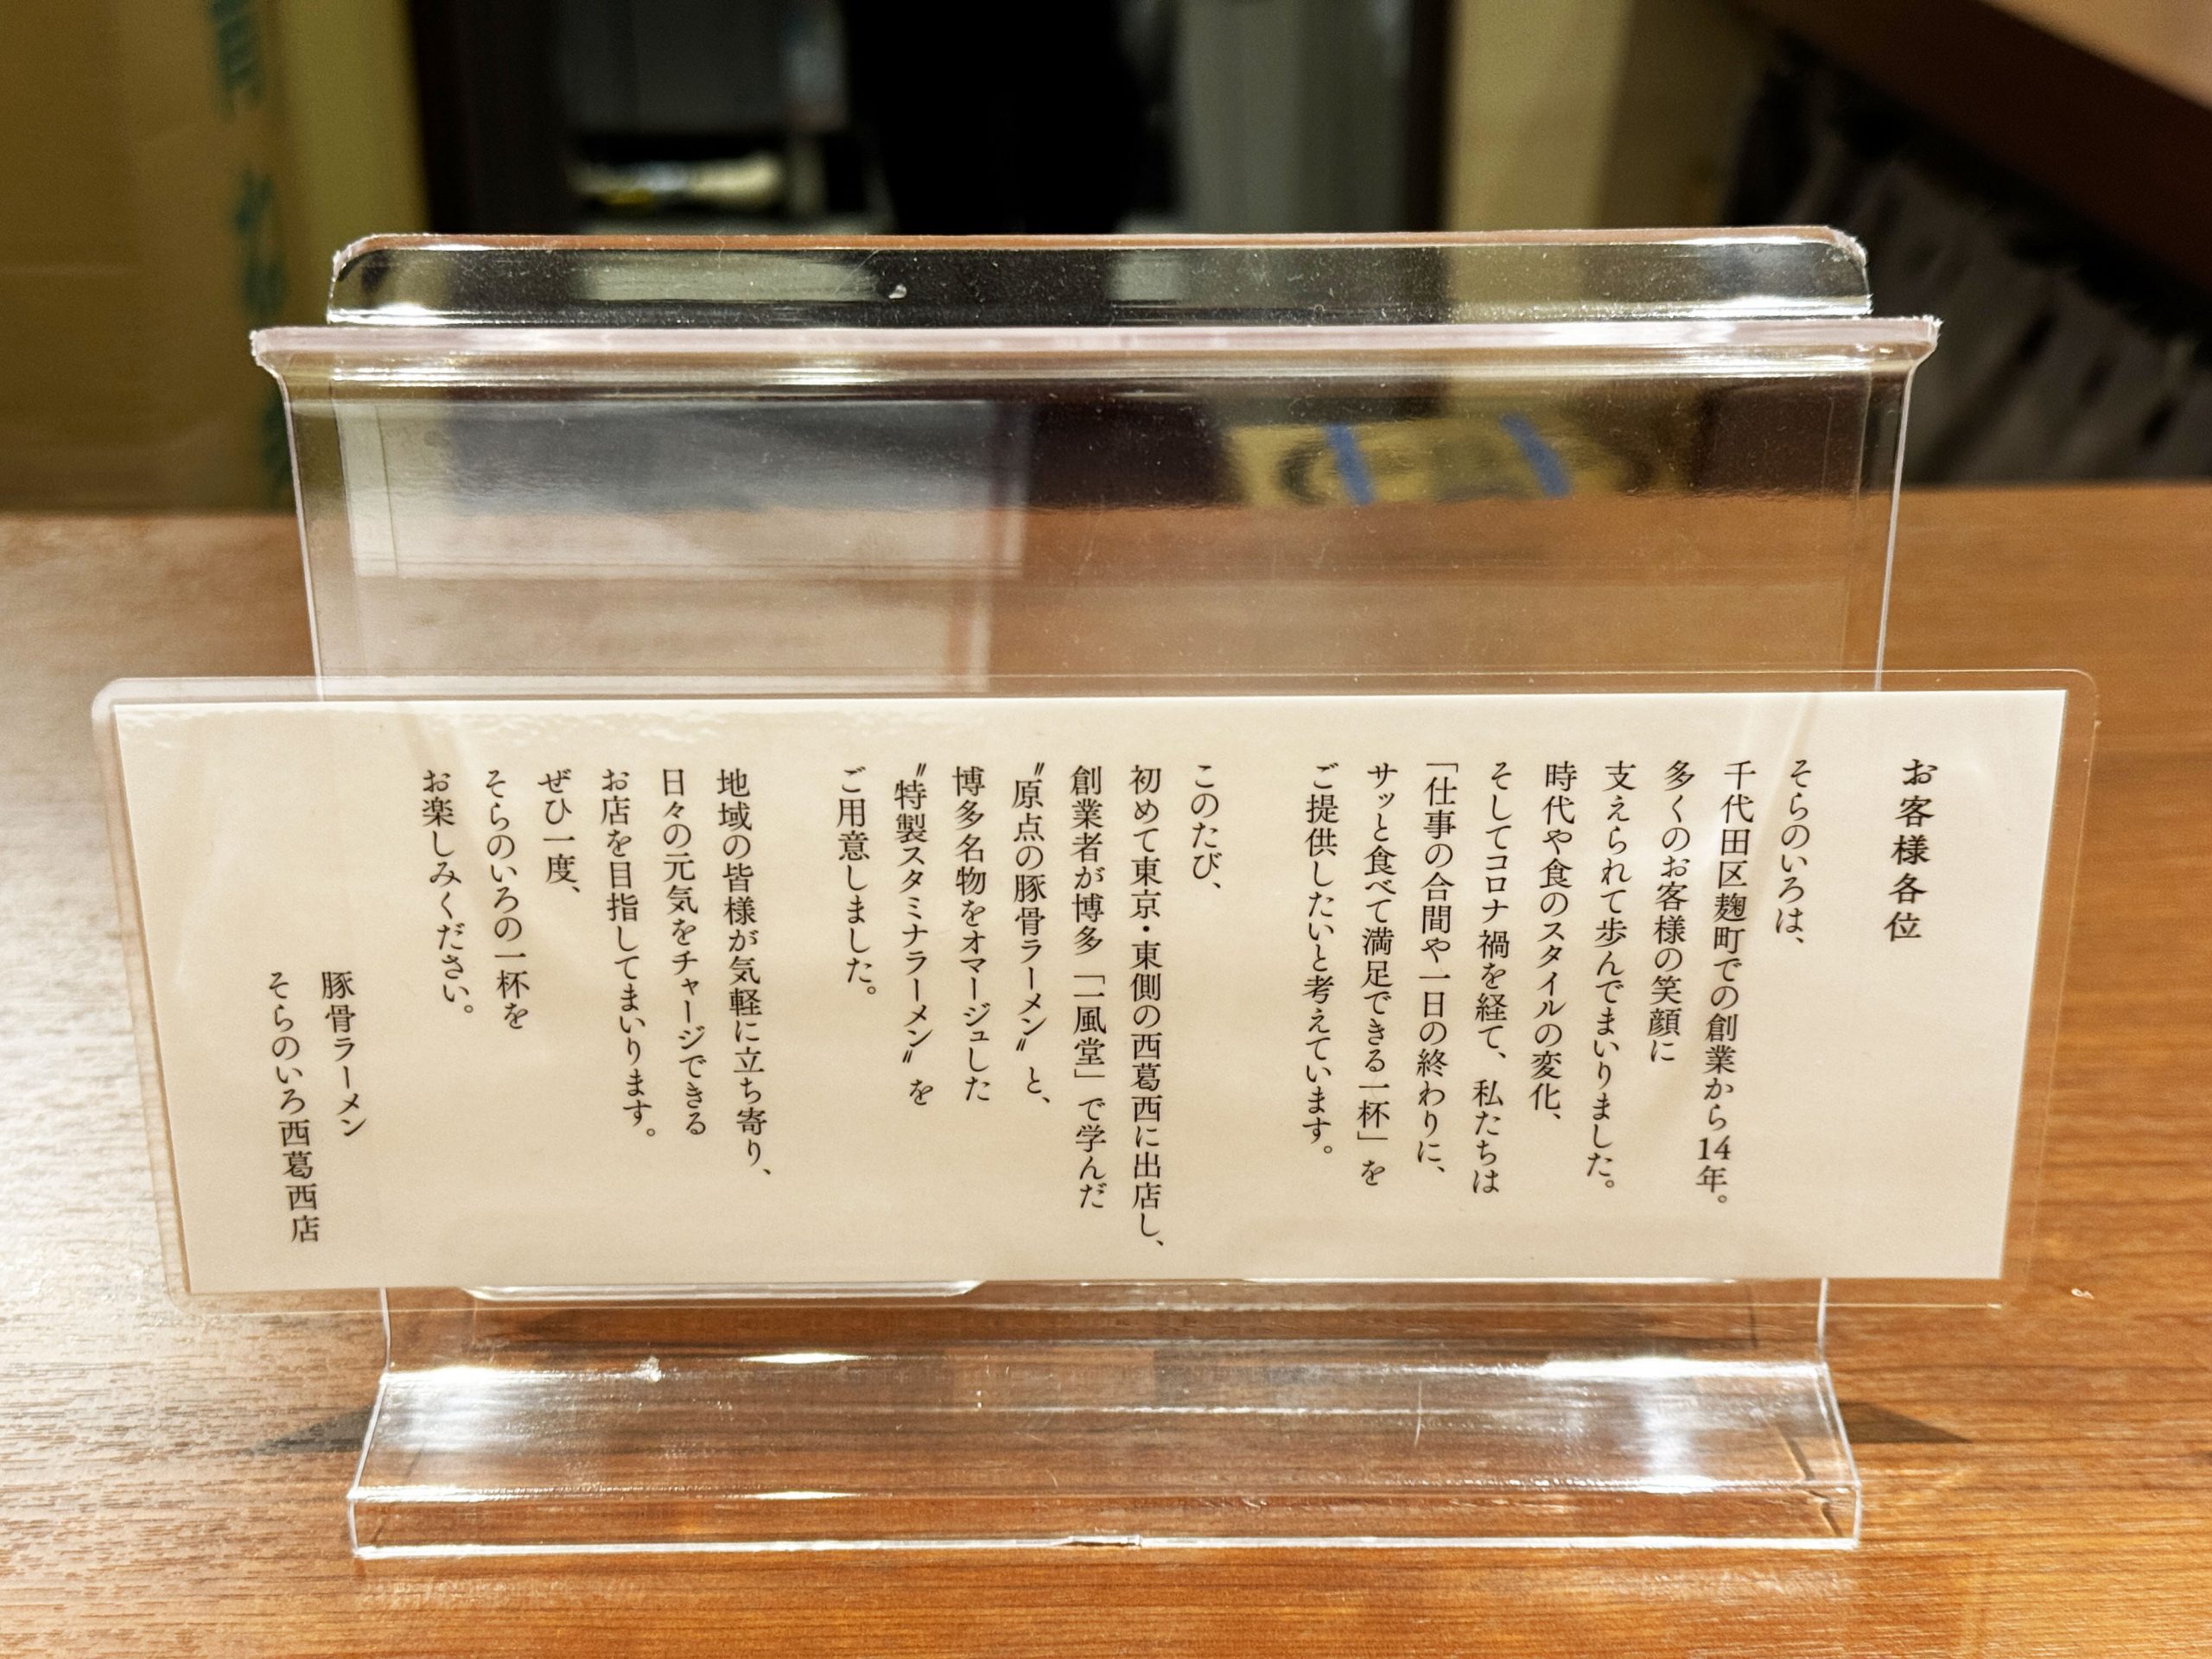 お客様各位
そらのいろは、
千代田区麹町での創業から14年。
多くのお客様の笑顔に
支えられて歩んでまいりました。
時代や食のスタイルの変化、
そしてコロナ禍を経て、私たちは
「仕事の合間や一日の終わりに、
サッと食べて満足できる一杯」を
ご提供したいと考えています。
このたび、
初めて東京・東側の西葛西に出店し、
創業者が博多「一風堂」で学んだ
〝原点の豚骨ラーメン〟と、
博多名物をオマージュした
〝特製スタミナラーメン〟を
ご用意しました。
地域の皆様が気軽に立ち寄り、
日々の元気をチャージできる
お店を目指してまいります。
ぜひ一度、
そらのいろの一杯を
お楽しみください。
豚骨ラーメン
そらのいろ西葛西店